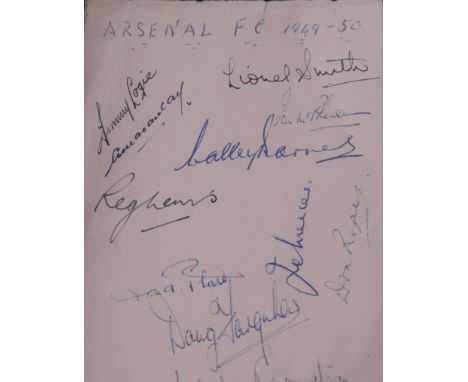 ARSENAL F.C. 1949-50
Lionel Smith
Jimmy Logie
A Macaulay
Ian McPherson
Walley Barnes
Reg Lewis
J. Mercer
Don Roper
Doug Farquhar